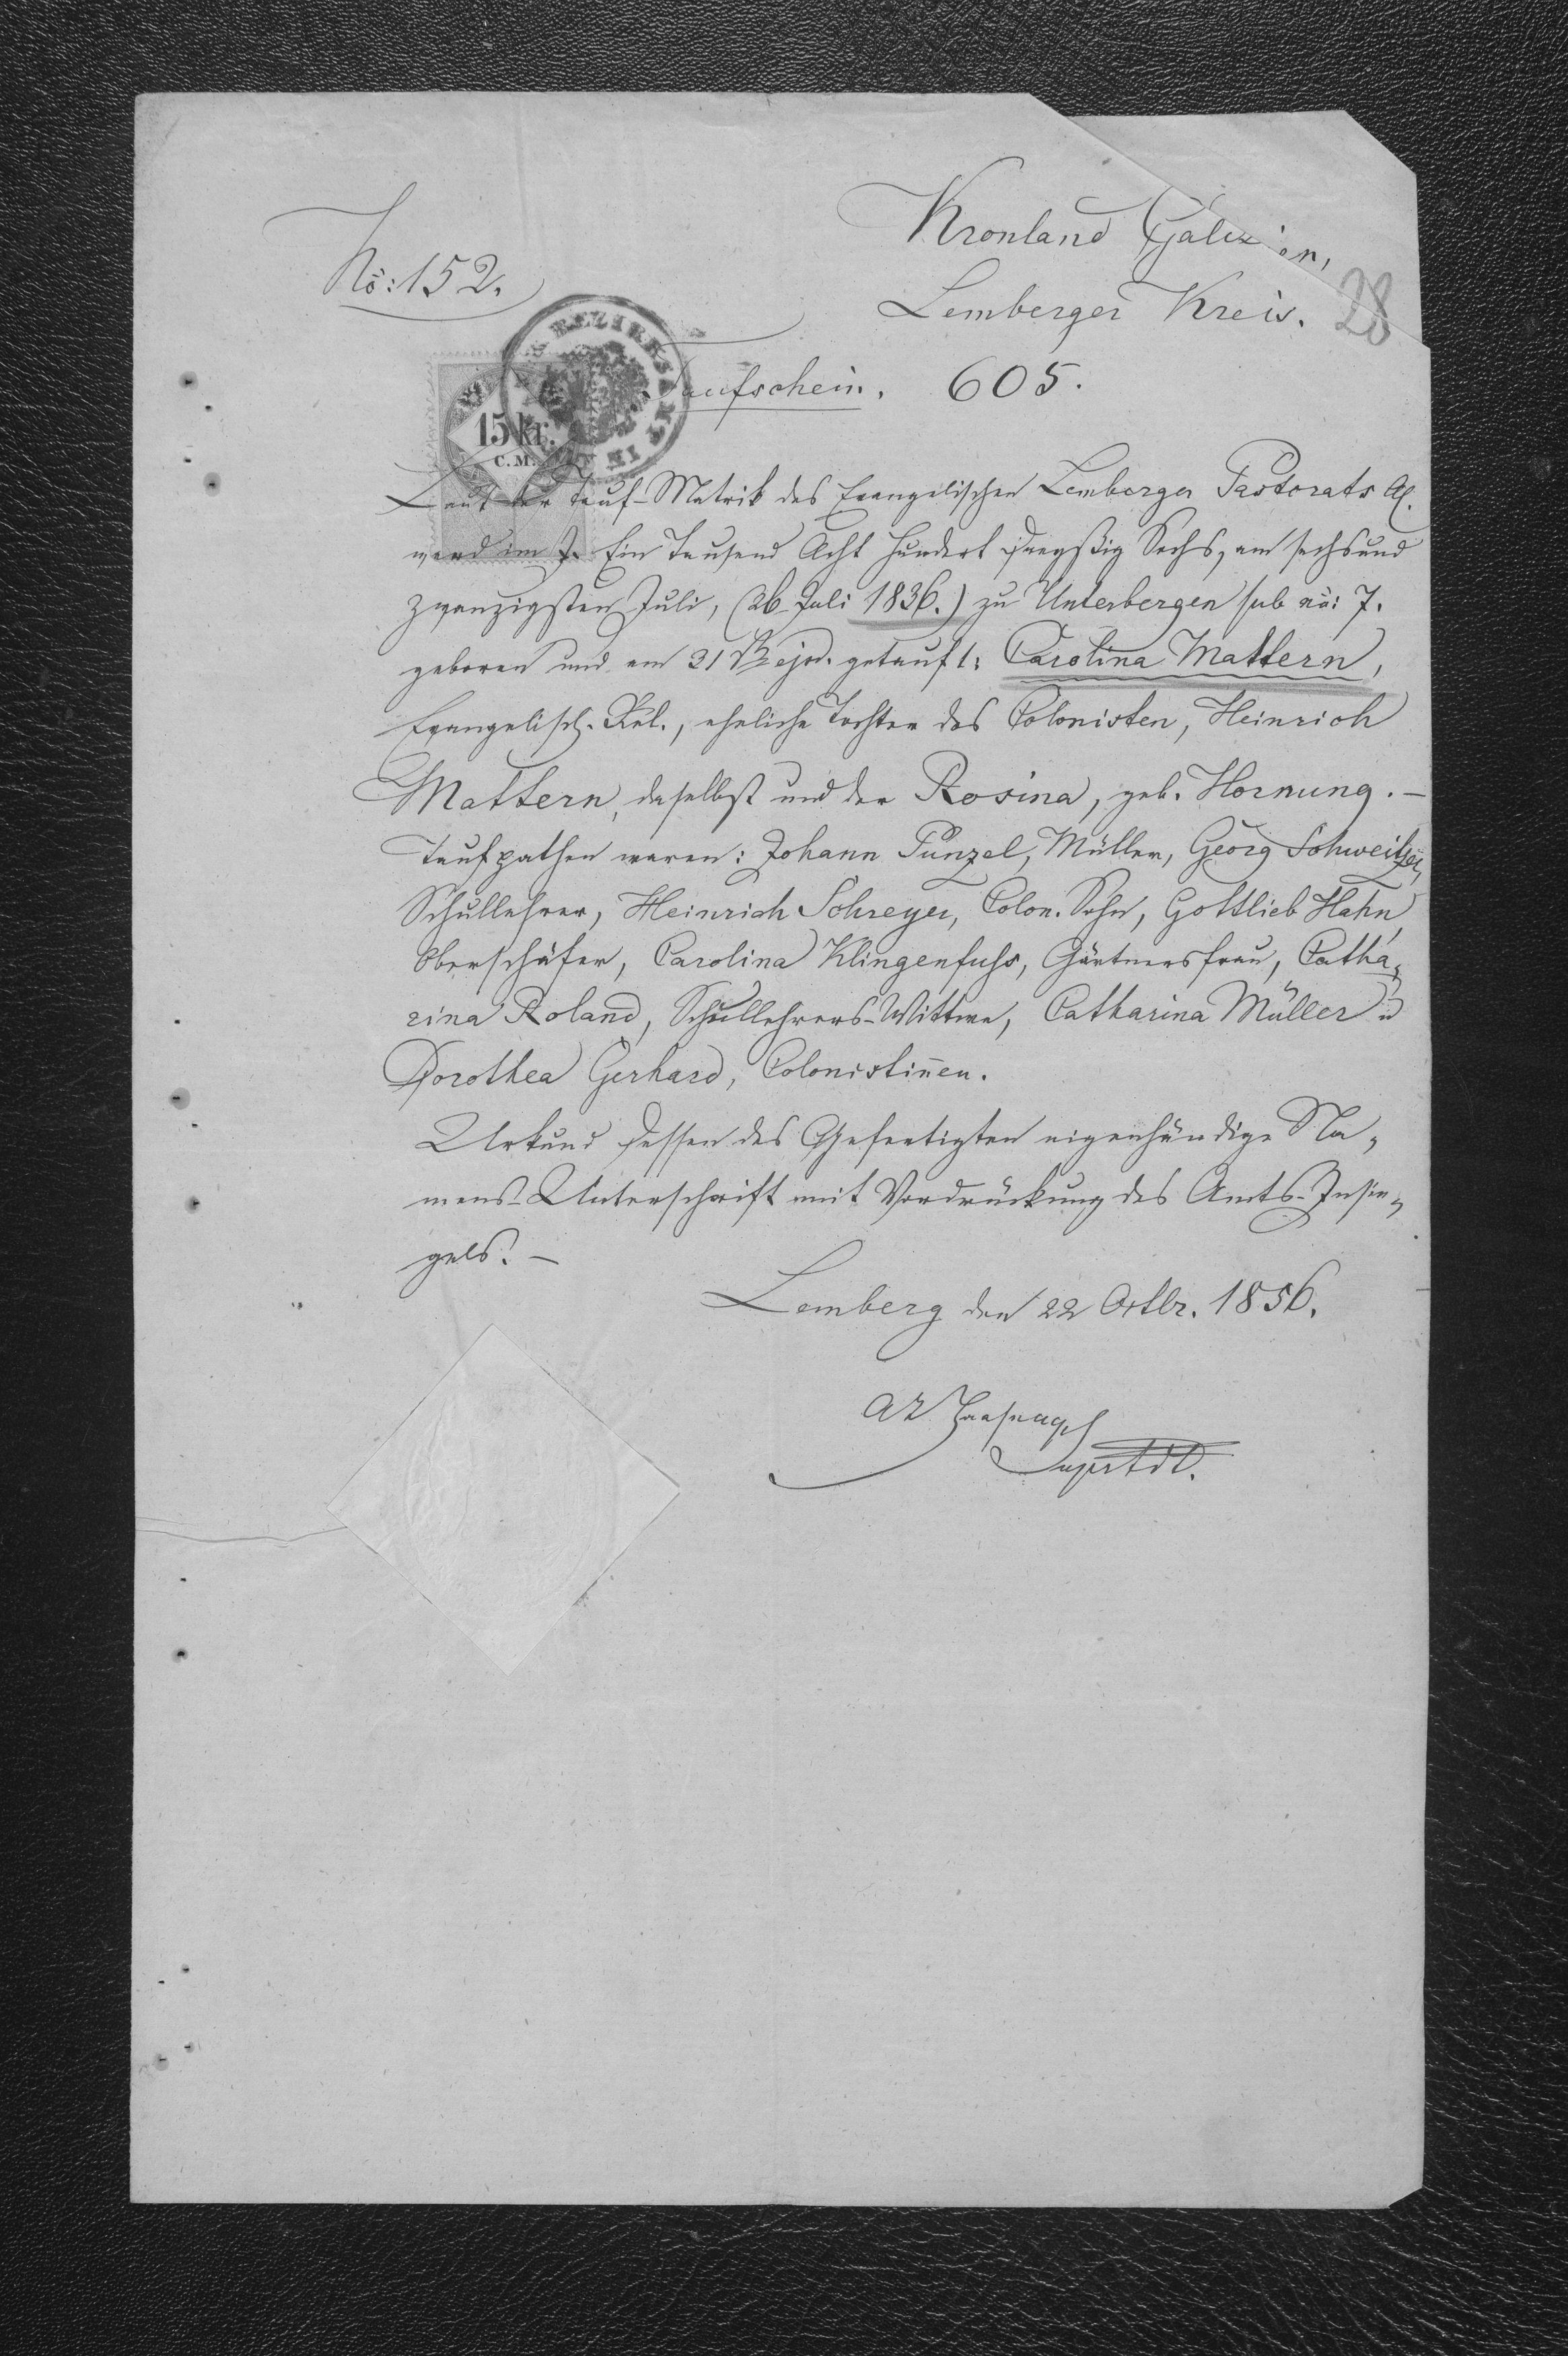 Kronland Galizien,
No: 152.
Lemberger Kreis.
28
BEZIRKSAMT IN
Taufschein. 605.
15 kr.
C.M.
Laut der Tauf-Matrik des Evangelischen Lemberger Pastorats A.C.
ward im J. Ein Tausend Acht Hundert Dreyßig Sechs, am sechsund
zwanzigsten Juli, (26 Juli 1836.) zu Unterbergen sub no: 7.
geboren und am 31 ejsd. getauft: Carolina Mattern,
Evangelisch. Rel., eheliche Tochter des Colonisten, Heinrich
Mattern, daselbst und der Rosina, geb. Hornung. —
Taufpathen waren: Johann Punzel, Müller, Georg Schweitzer,
Schullehrer, Heinrich Schreyer, Colon. Sohn, Gottlieb Hahn,
Oberschäfer, Carolina Klingenfuhs, Gärtnersfrau, Catha-
rina Roland, Schullehrers-Wittwe, Catharina Müller u
Dorothea Gerhard, Colonistinnen.
Urkund dessen des Gefertigten eigenhändige Na-
mens-Unterschrift mit Vordrückung des Amts-Insie-
gels. —
Lemberg den 22 Octbr. 1856.
Haasenagel
Suprtdt.